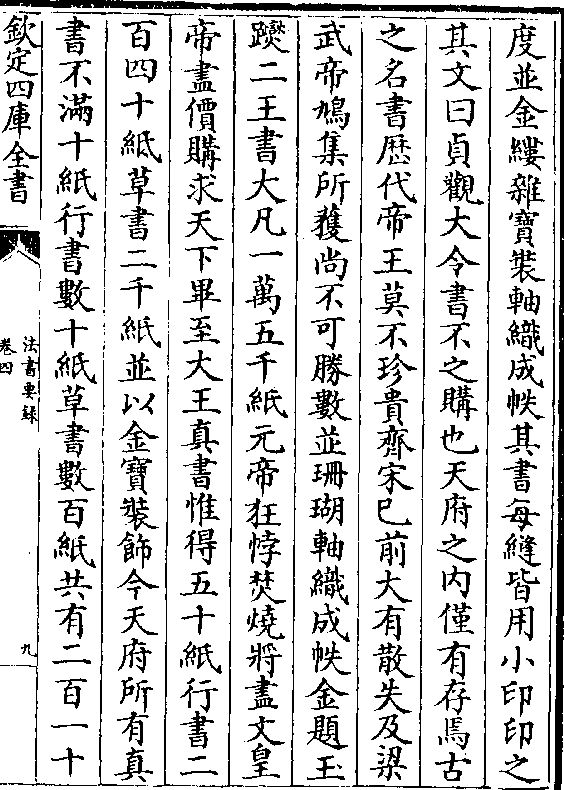 度並金縷雜寶裝軸織成帙其書每縫皆用小印印之
其文曰貞觀大令書不之購也天府之内僅有存焉古
之名書歴代帝王莫不珍貴齊宋已前大有散失及梁
武帝鳩集所獲尚不可勝數並珊瑚軸織成帙金題玉
躞二王書大凡一萬五千紙元帝狂悖焚燒將盡文皇
帝盡價購求天下畢至大王真書惟得五十紙行書二
百四十紙草書二千紙並以金寶裝飾今天府所有真
書不滿十紙行書數十紙草書數百紙共有二百一十
欽定四庫全書
法書要録
卷四
九